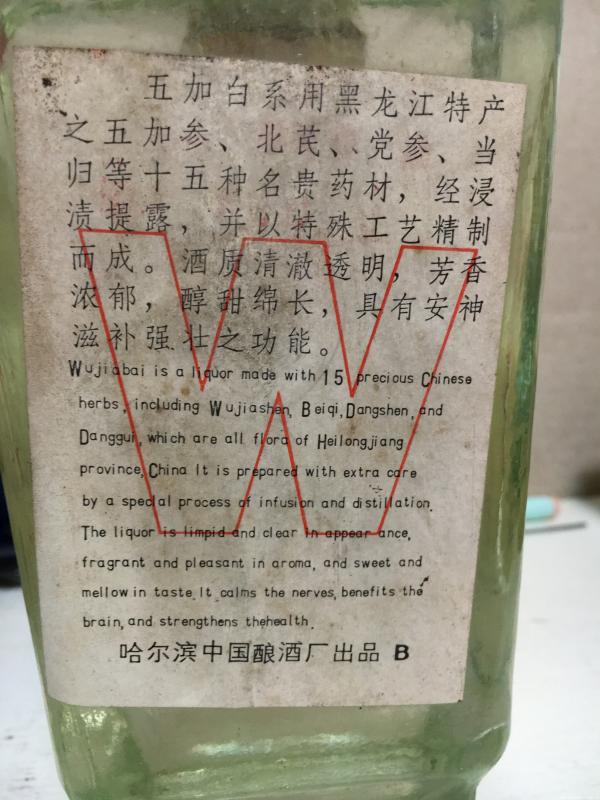 五加白系用黑龙江特产
之五加参、北芪、、党参、当
归等十五种名贵药材，经浸
渍提露，并以特殊工艺精制
而成。酒质清澈透明，芳香
浓郁，醇甜绵长，具有安神
滋补强壮之功能。
Wujiabai is a liquor made with 15 precious Chinese
herbs, including Wujiashen, Beiqi, Dangshen, and
Danggui, which are all flora of Heilongjiang
province, China It is prepared with extra care
by a special process of infusion and distillation.
The liquor is limpid and clear in appear ance,
fragrant and pleasant in aroma, and sweet and
mellow in taste. It calms the nerves, benefits the
brain, and strengthens thehealth.
哈尔滨中国酿酒厂出品 B
W